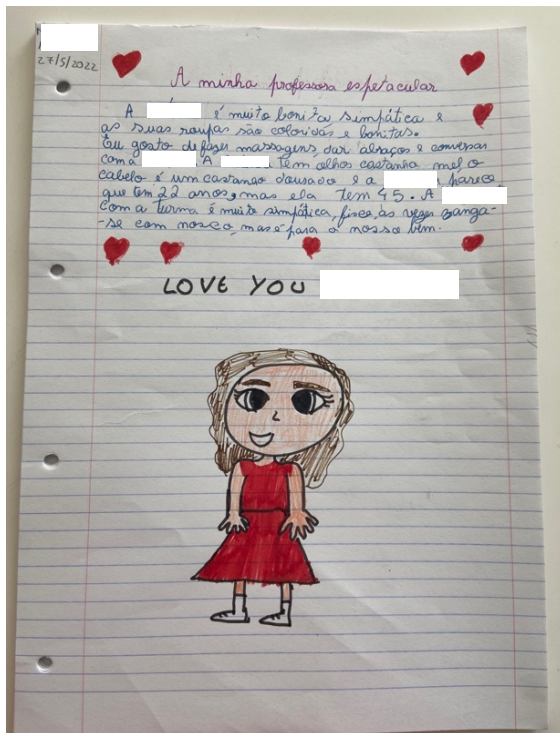 27/5/2022
A minha professora espetacular
A é muito bonita, simpática e
as suas roupas são coloridas e bonitas.
Eu gosto de fazer massagens, dar abraços e conversar
com a A tem olhos castanho mel o
cabelo é um castanho dourado e a parece
que tem 22 anos, mas ela tem 45. A
com a turma é muito simpática, fixe, às vezes zanga-
-se com nosco, mas é para o nosso bem.
LOVE YOU